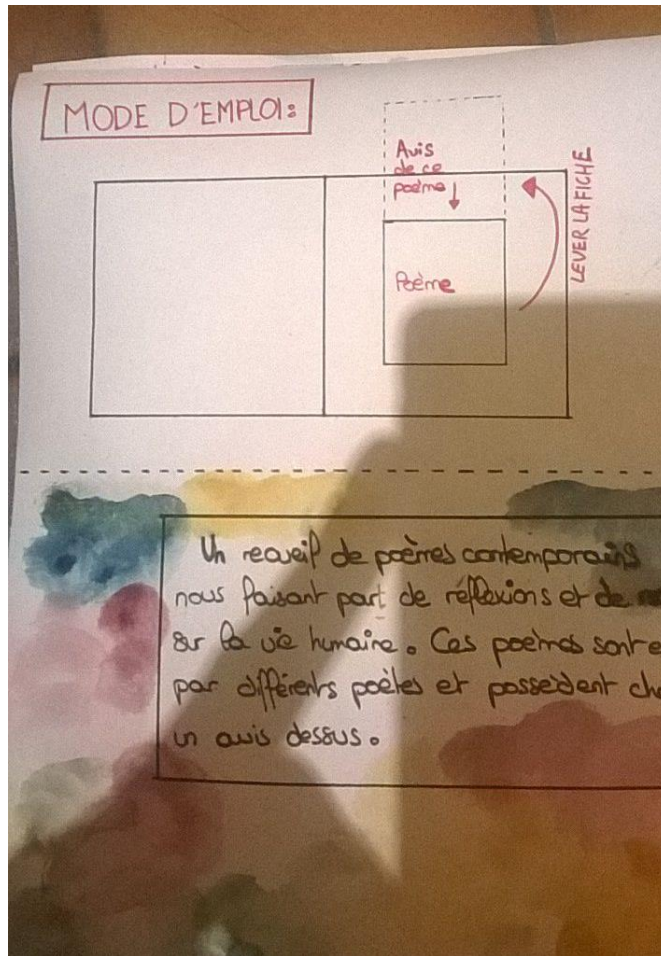 MODE D'EMPLOI:
Avis
de ce
poème
LEVER LA FICHE
Poème
Un recueil de poèmes contemporains
nous faisant part de réflexions et de
sur la vie humaine. Ces poèmes sont
par différents poètes et possèdent
un avis dessus.